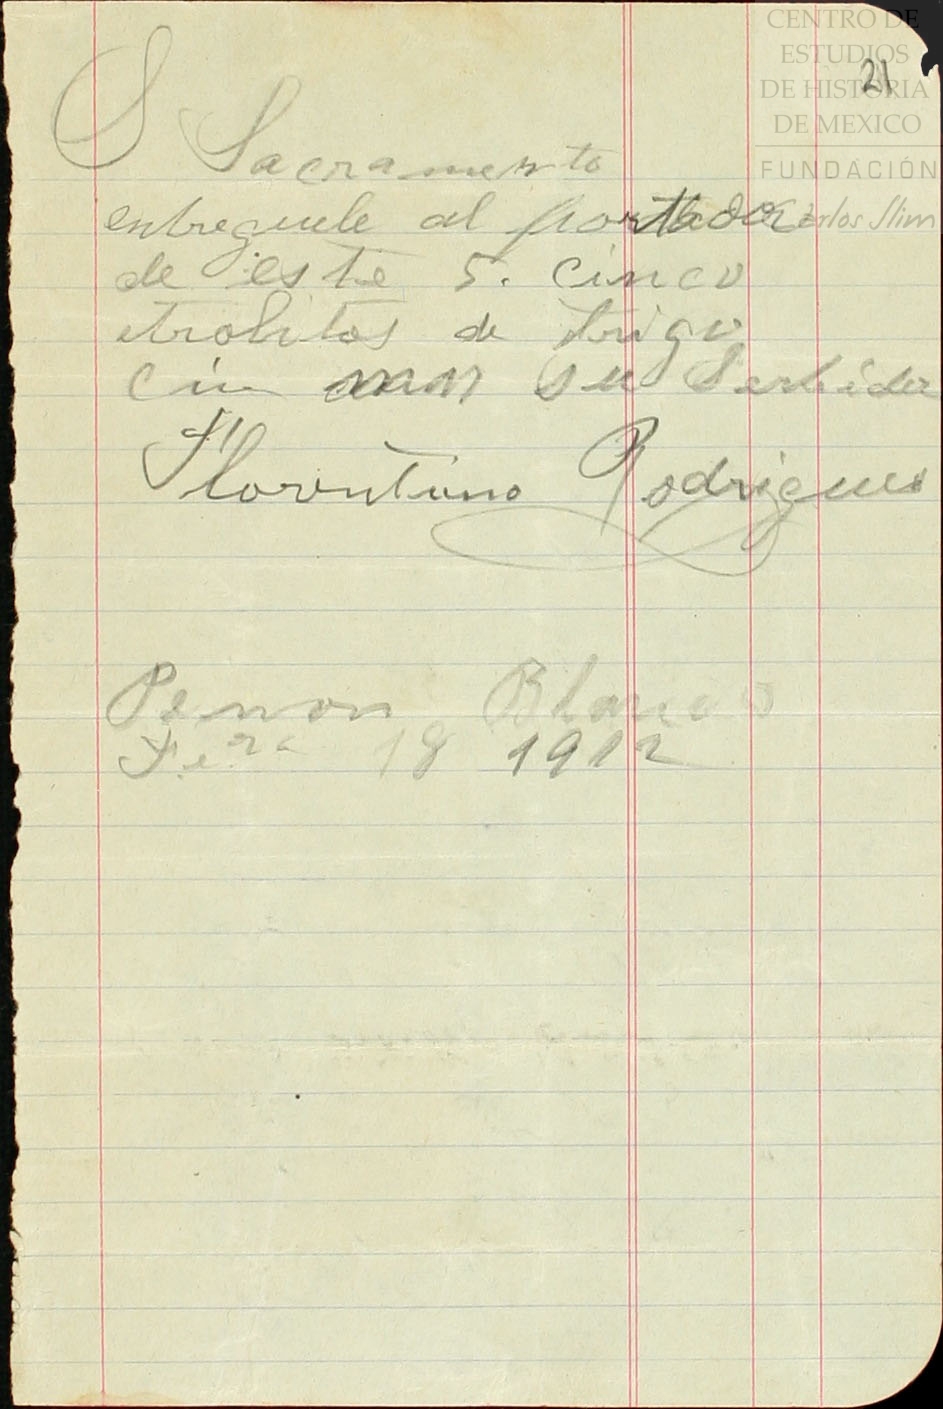 CENTRO DE
ESTUDIOS
DE HISTORIA
DE MEXICO
FUNDACIÓN
Carlos Slim
21
S Sacramento
entreguele al portador
de este 5. cinco
de trigo
sin mas su Serbidor
Florentino Rodrigues
Penon Blanco
18 1912